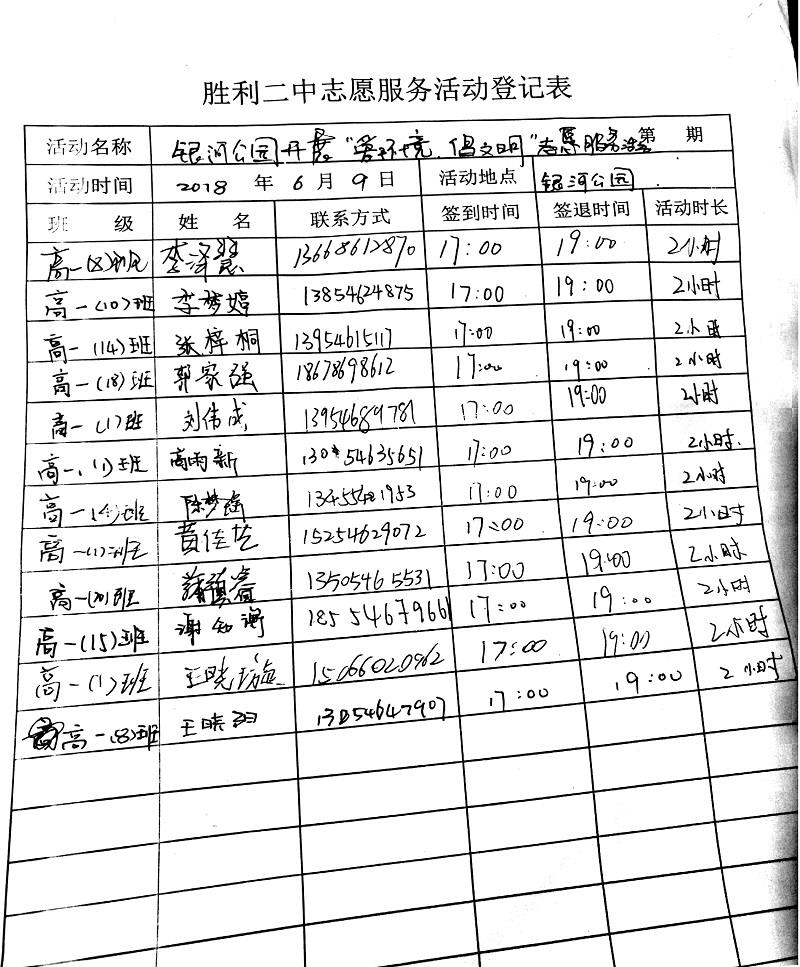 胜利二中志愿服务活动登记表
活动名称 银河公园开展"爱环境、倡文明"志愿服务活动 第 期
活动时间 2018 年 6 月 9 日 活动地点 银河公园
班 级 姓 名 联系方式 签到时间 签退时间 活动时长
高一(8)班 李泽慧 13668612870 17:00 19:00 2小时
高一(10)班 李梦婷 13854624875 17:00 19:00 2小时
高一(14)班 张梓桐 13954615117 17:00 19:00 2小时
高一(18)班 郭家强 18678698612 17:00 19:00 2小时
高一(1)班 刘伟成 13954689781 17:00 19:00 2小时
高一(1)班 高雨新 54635651 17:00 19:00 2小时
高一 班 陈梦瑶 1953 17:00 19:00 2小时
高一(1)班 黄佳艺 15254629072 17:00 19:00 2小时
高一(20)班 13505465531 17:00 19:00 2小时
高一(15)班 谢知 18554679661 17:00 19:00 2小时
高一(1)班 王晓璇 15066020962 17:00 19:00 2小时
高一(8)班 王晓羽 13054647907 17:00 19:00 2小时